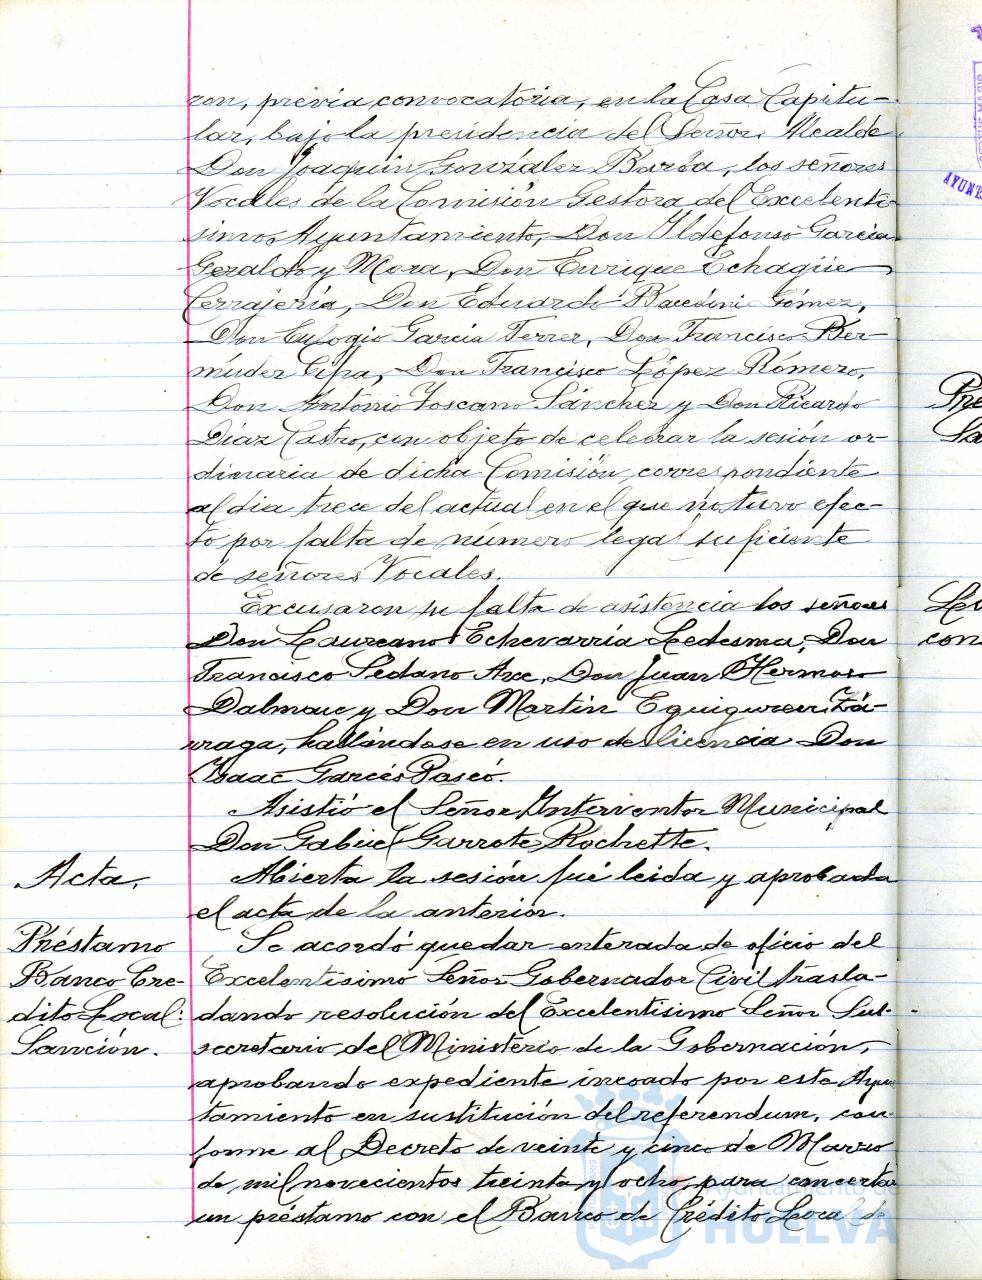 ron, previa convocatoria, en la Casa Capitu-
lar, bajo la presidencia del Señor Alcalde
Don Joaquín González Barba, los señores
Vocales de la Comisión Gestora del Excelentí-
simo Ayuntamiento, Don Ildefonso García
Geraldo y Mora, Don Enrique Echagüe
Cerrajería, Don Eduardo Bacedoni Gómez,
Don Eulogio García Ferrer, Don Francisco Ber-
múdez Cifra, Don Francisco López Rómero,
Don Antonio Toscano Sánchez y Don Ricardo
Díaz Castro, con objeto de celebrar la sesión or-
dinaria de dicha Comisión correspondiente
al dia trece del actual en el que no tuvo efec-
to por falta de número legal suficiente
de señores Vocales.
Excusaron su falta de asistencia los señores
Don Laureano Echevarría Ledesma, Don
Francisco Sedano Arce, Don Juan Hermoso
Dalmau y Don Martín Eguiguren Izá-
uraga, hallándose en uso de licencia Don
Isaac Garcés Pascó.
Asistió el Señor Interventor Municipal
Don Gabriel Garrote Rochette.
Acta.
Abierta la sesión fué leida y aprobada
el acta de la anterior.
Préstamo
Banco Cre-
dito Local:
Sanción.
Se acordó quedar enterada de oficio del
Excelentísimo Señor Gobernador Civil trasla-
dando resolución del Excelentísimo Señor Sub-
secretario del Ministerio de la Gobernación,
aprobando expediente incoado por este Ayun
tamiento en sustitución del referendum, con-
forme al Decreto de veinte y cinco de Marzo
de mil novecientos treinta y ocho, para concertar
un préstamo con el Banco de Crédito Local de
Ayuntamiento de
HUELVA
Pré
Sa
Lev
con
AYUNT